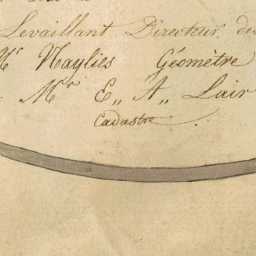 Levaillant Directeur du
Mr Naylies Géomètre
Mr E,, A,, Lair
Cadastre